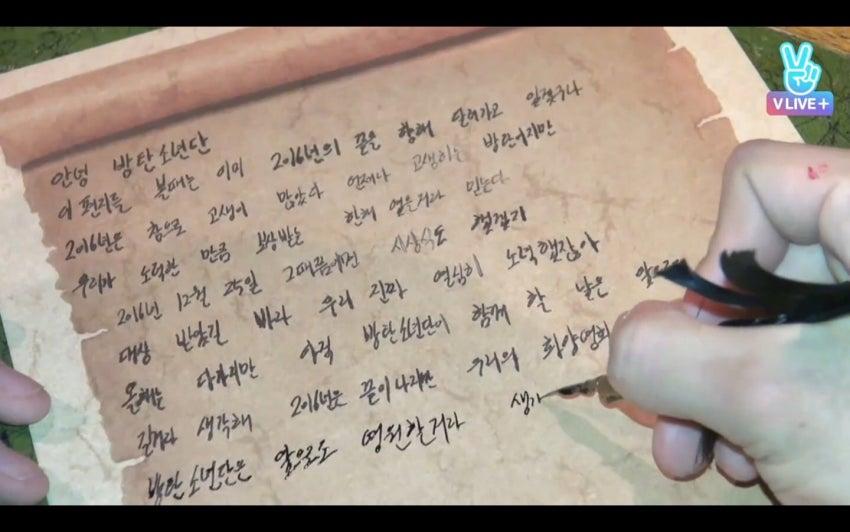 V LIVE+
안녕 방탄소년단
이 편지를 볼때는 이미 2016년의 끝을 향해 달려가고 있겠구나
2016년은 참으로 고생이 많았다 언제나 고생하는 방탄이지만
우리가 노력한 만큼 보상받는 한해 였을거라 믿는다
2016년 12월 25일 시상식도 했겠지
대상 받았길 바라 우리 진짜 열심히 노력했잖아
올해는 다가지만 아직 방탄소년단이 함께 할 날은
길거라 생각해 2016년은 끝이나지만 우리의 화양연화
방탄소년단은 앞으로도 영원할거라